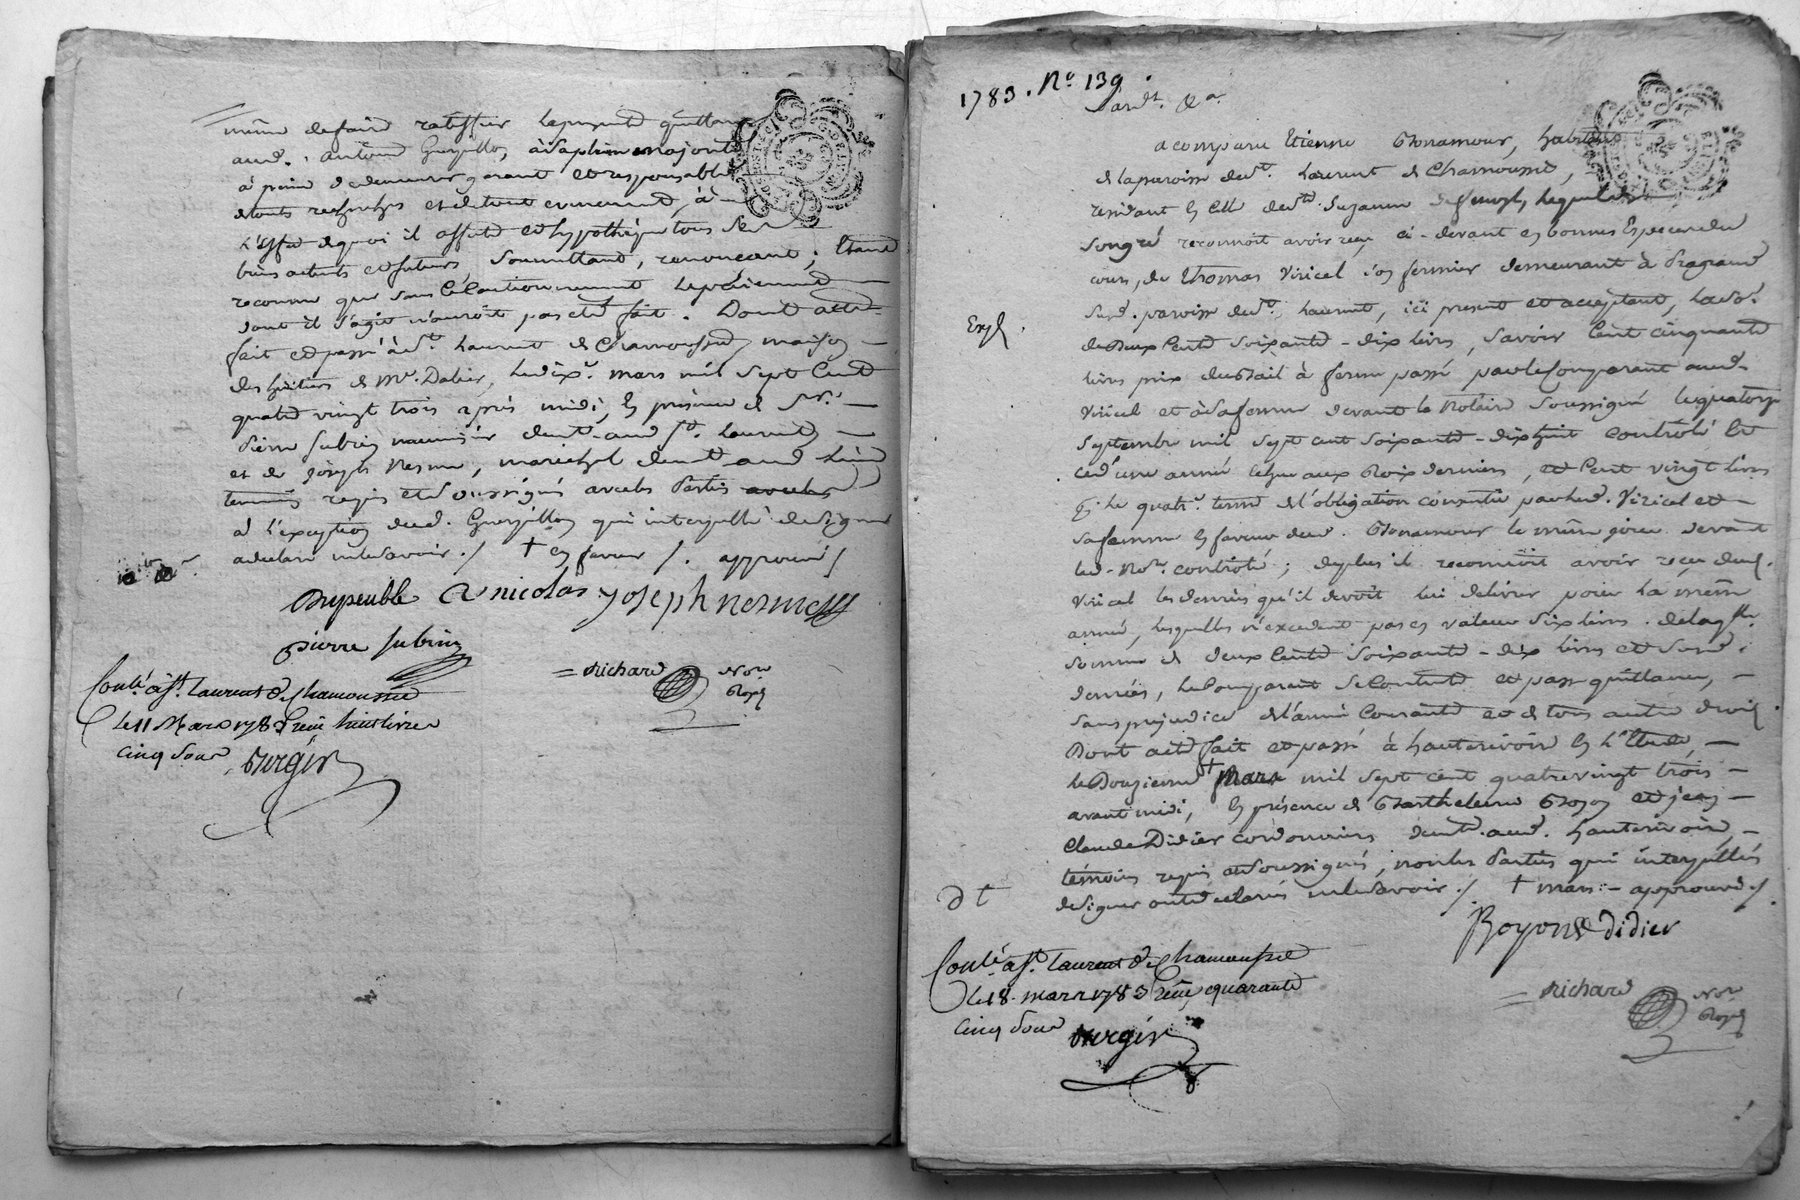 même de faire ratiffier la presente quittance
aud. Antoine Guerpillon, à sa pleine majorité
à peine de demeurer garant et responsable
de touts recherches et de tout evenement, à
l'effet de quoi il affecte et hypothèque tous ses
biens actuels et futurs, soumettant, renonçant; étant
reconnu que sans le cautionnement le présent
dont il s'agit n'auroit pas eté fait. Dont acte
fait et passé à St. Laurent de Chamousset, maison
des heritiers de Mr. Dalier, le dix mars mil sept cent
quatre vingt trois après midi, en présence de Sr.
Pierre Subrin menuisier demt. aud St. Laurent
et de Joseph Nesme, maréchal demt aud lieu
temoins requis et soussignés avec les parties
à l'exception dud. Guerpillon qui interpellé de signer
a declaré ne le savoir ./ † en faveur /. approuvé /
Dupeuble A nicolas joseph nesme
pierre subrin
= Richard Nore
Royal
Conlé. à St. Laurent de Chamousset
le 11 Mars 1783 reçu huit livres
cinq sous Vergier
1783. No 139.
Mars
a comparu Etienne Bonamour, habitant
de la paroisse de St. Laurent de Chamousset,
son gré reconnoit avoir reçu ci-devant en bonnes especes du
cours, de Thomas Viricel son fermier demeurant à
Expé.
susd. paroisse de St. Laurent, ici present et acceptant, la so.
de deux cents soixante-dix livres, savoir cent cinquante
livres prix du bail à ferme passé par le comparant aud.
Viricel et à sa femme devant le Notaire soussigné le quatorze
septembre mil sept cent soixante-dixhuit controlé le
et d'une année echue aux Rois derniers, et cent vingt livres
pr. le quatre. terme de l'obligation consentie par led. Viricel et
sa femme en faveur dud. Bonamour le même jour devant
led. Nore. controlé; de plus il reconnoit avoir reçu dud.
Viricel les denrées qu'il devoit lui delivrer pour la même
année, lesquelles n'excedent pas en valeur six livres. de laqlle.
somme de deux cents soixante-dix livres et susd.
denrées, le comparant se contente et passe quittance,
sans prejudice de l'année courante et de tous autres droits.
Dont acte fait et passé à hauterivoire en l'Etude,
le Douzieme † Mars mil sept cent quatrevingt trois
avant midi, en présence de Barthelemi Boyon et jean
Claude Didier cordonniers demt. aud. hauterivoire,
témoins requis et soussignés, non les parties qui interpellés
de signer ont declaré ne le savoir ./ † mars – approuvé /.
dt
Boyon Didier
= Richard Nore
Royal
Conlé. à St. Laurent de Chamousset
le 18 mars 1783 reçu quarante
cinq sous Vergier